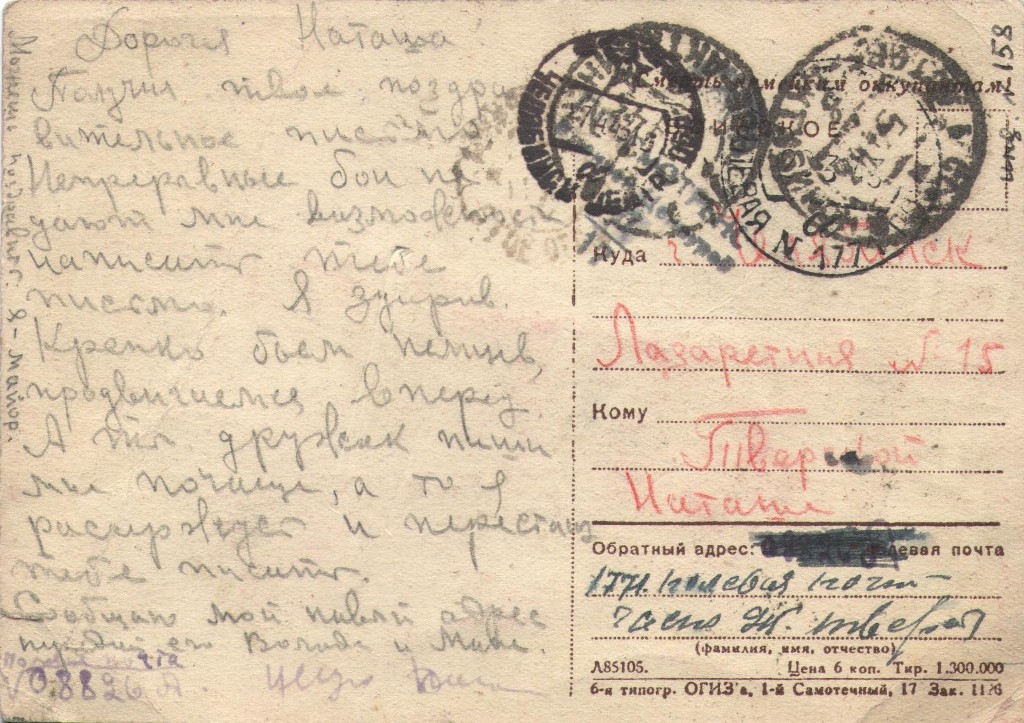 Дорогая Наташа
Получил твое поздра
вительное письмо
Непрерывные бои не
дают мне возможность
написать тебе
письмо. Я здоров.
Крепко бьем немцев,
продвигаемся вперед.
А ты дружок пиши
мне почаще, а то я
рассержусь и перестану
тебе писать.
Сообщаю мой новый адрес
передай его Володе и Маме.
Полевая почта
08826 А. Целую
Я - майор.
158
оккупантам!
ПОЛЕВАЯ N 177
Куда г. Челябинск
Лазаретная № 15
Кому
Тверской
Наташе
Обратный адрес: полевая почта
1771 полевая почт-
часть
(фамилия, имя, отчество)
Л85105. Цена 6 коп. Тир. 1.300.000
6-я типогр. ОГИЗ'а, 1-й Самотечный, 17 Зак. 1126